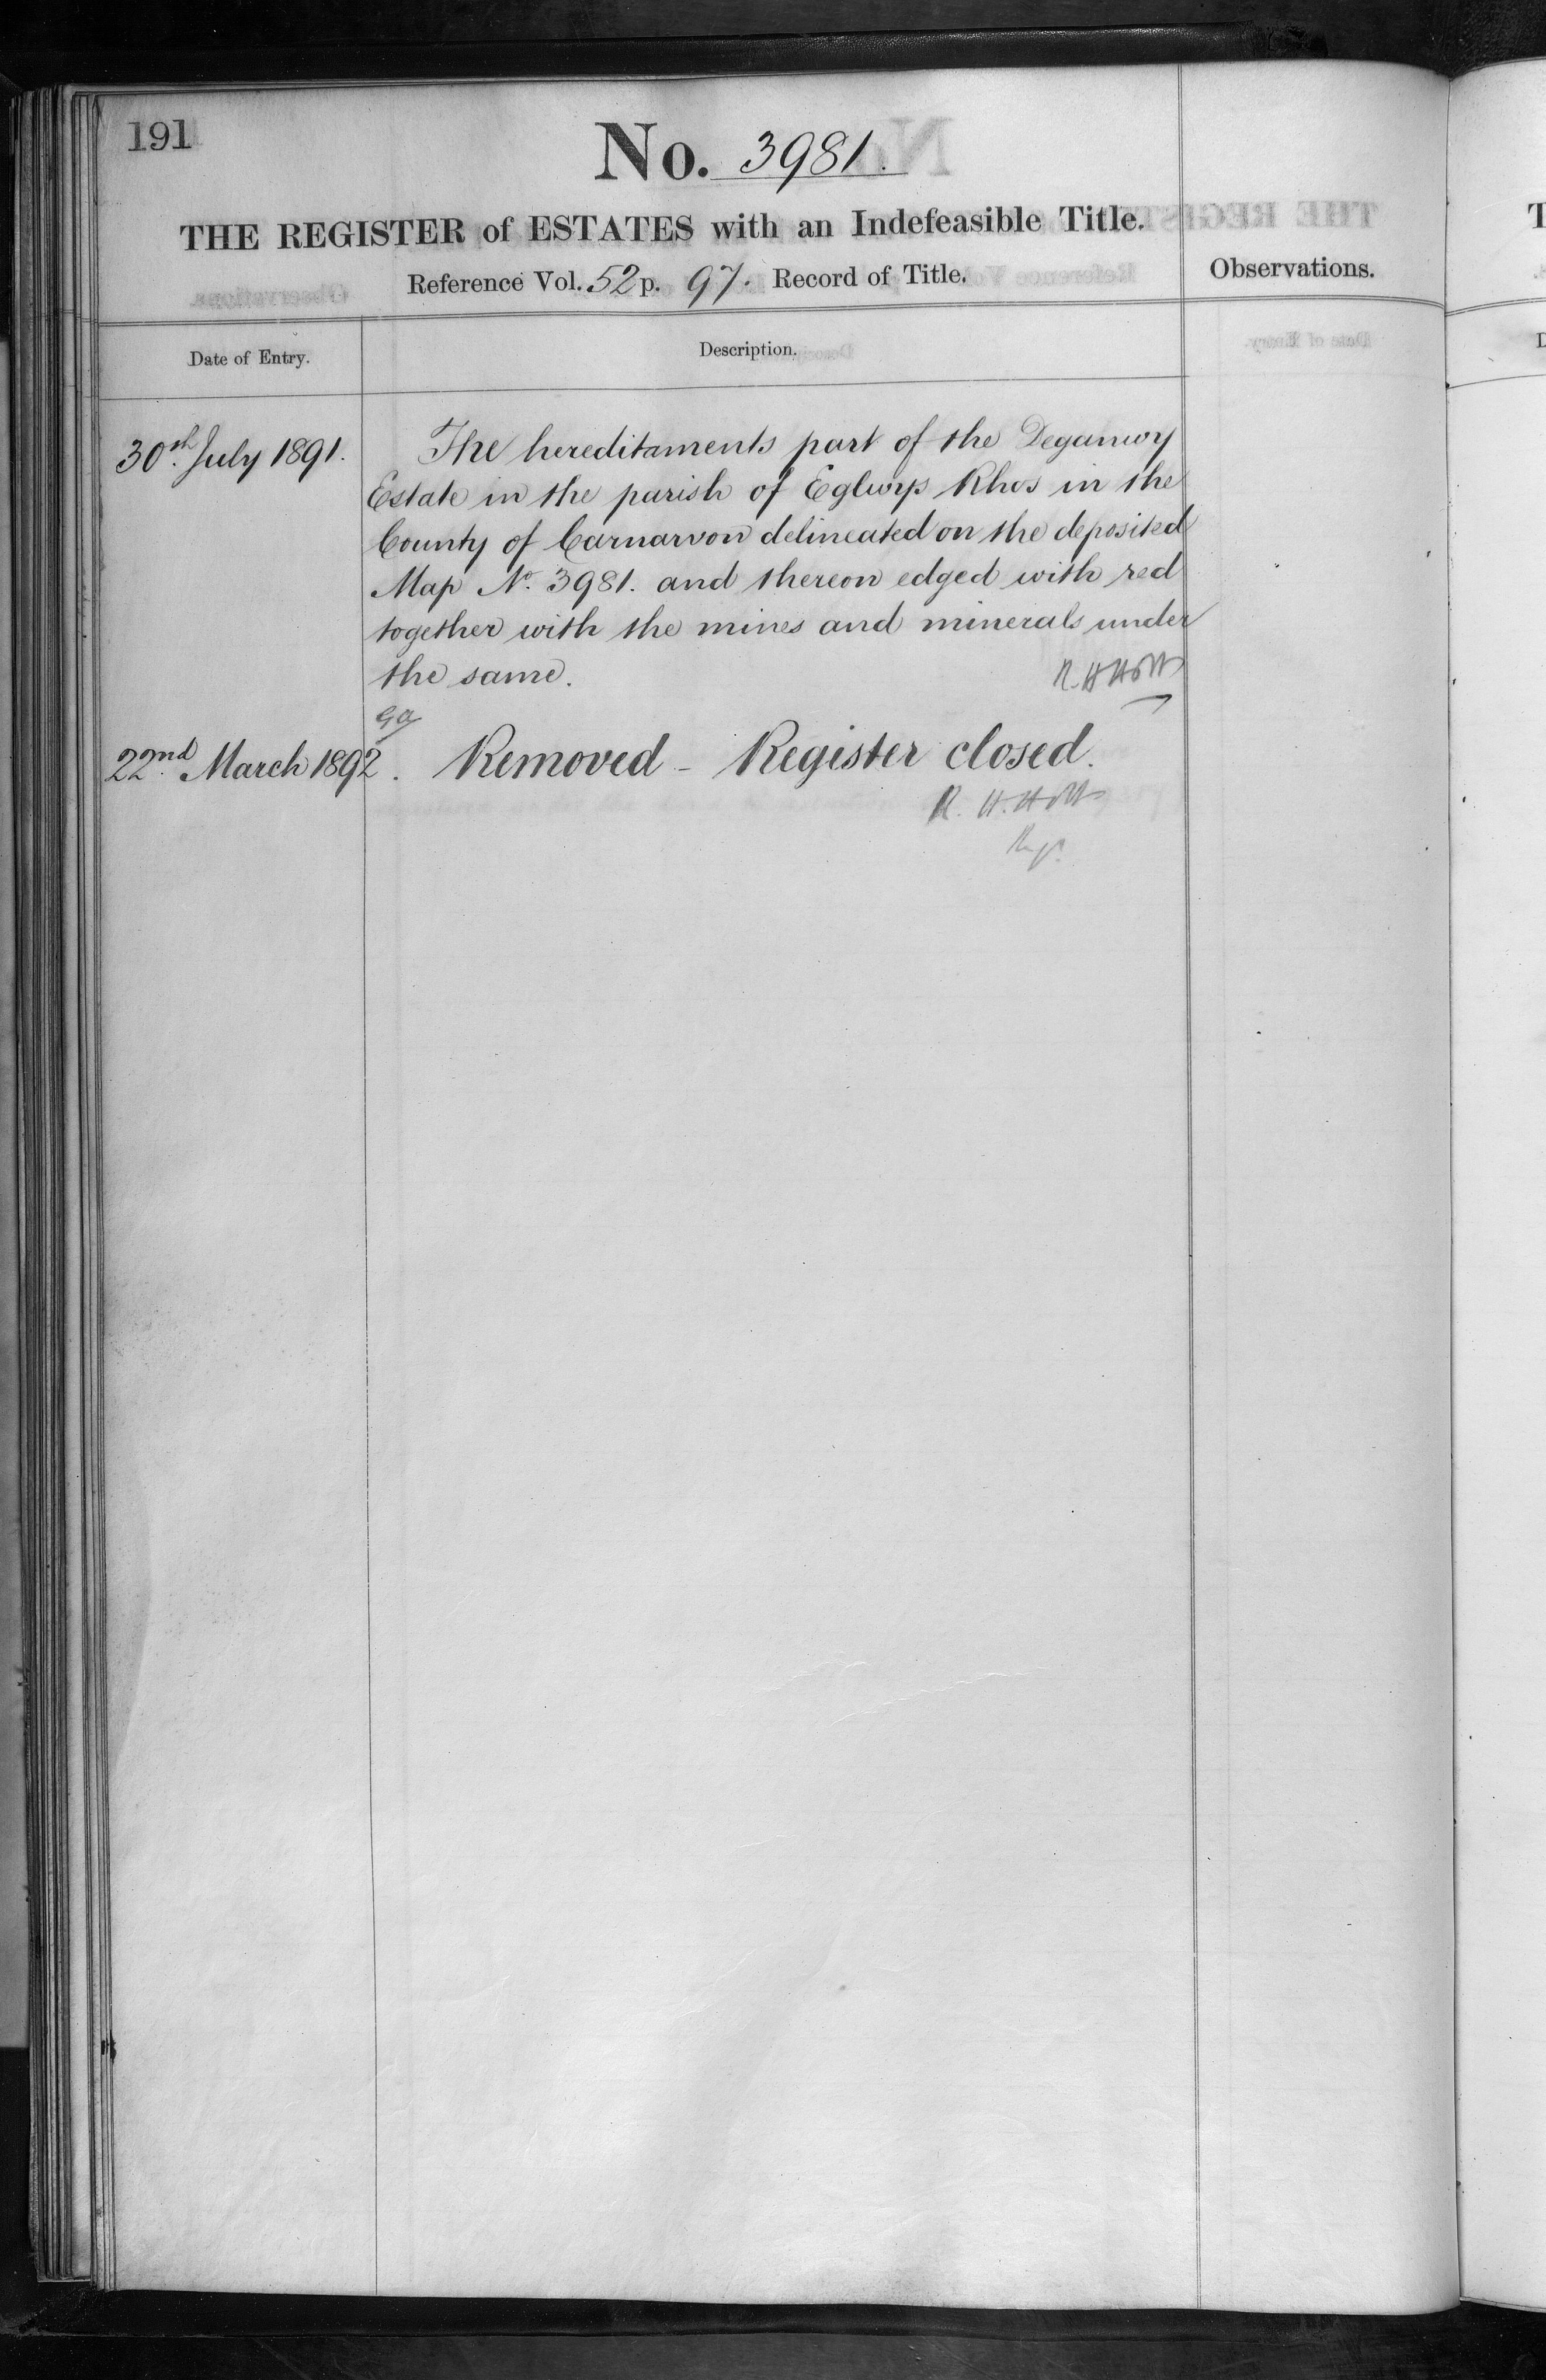 191
No. 3981.
THE REGISTER of ESTATES with an Indefeasible Title.
Reference Vol. 52 p. 97. Record of Title.
Observations.
Date of Entry.
Description.
30th. July 1891.
The hereditaments part of the Deganwy
Estate in the parish of Eglwys Rhos in the
County of Carnarvon delineated on the deposited
Map No. 3981. and thereon edged with red
together with the mines and minerals under
the same.
R. H. Holt
22nd. March 1892. Removed - Register closed.
R. H. Holt
Regr.